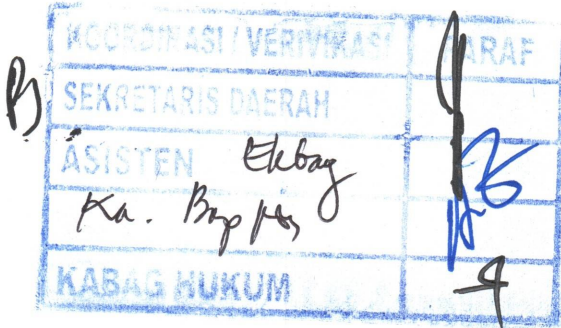 KOORDINASI / VERIVIKASI PARAF
Pj SEKRETARIS DAERAH
ASISTEN Ekbag
Ka.
KABAG HUKUM